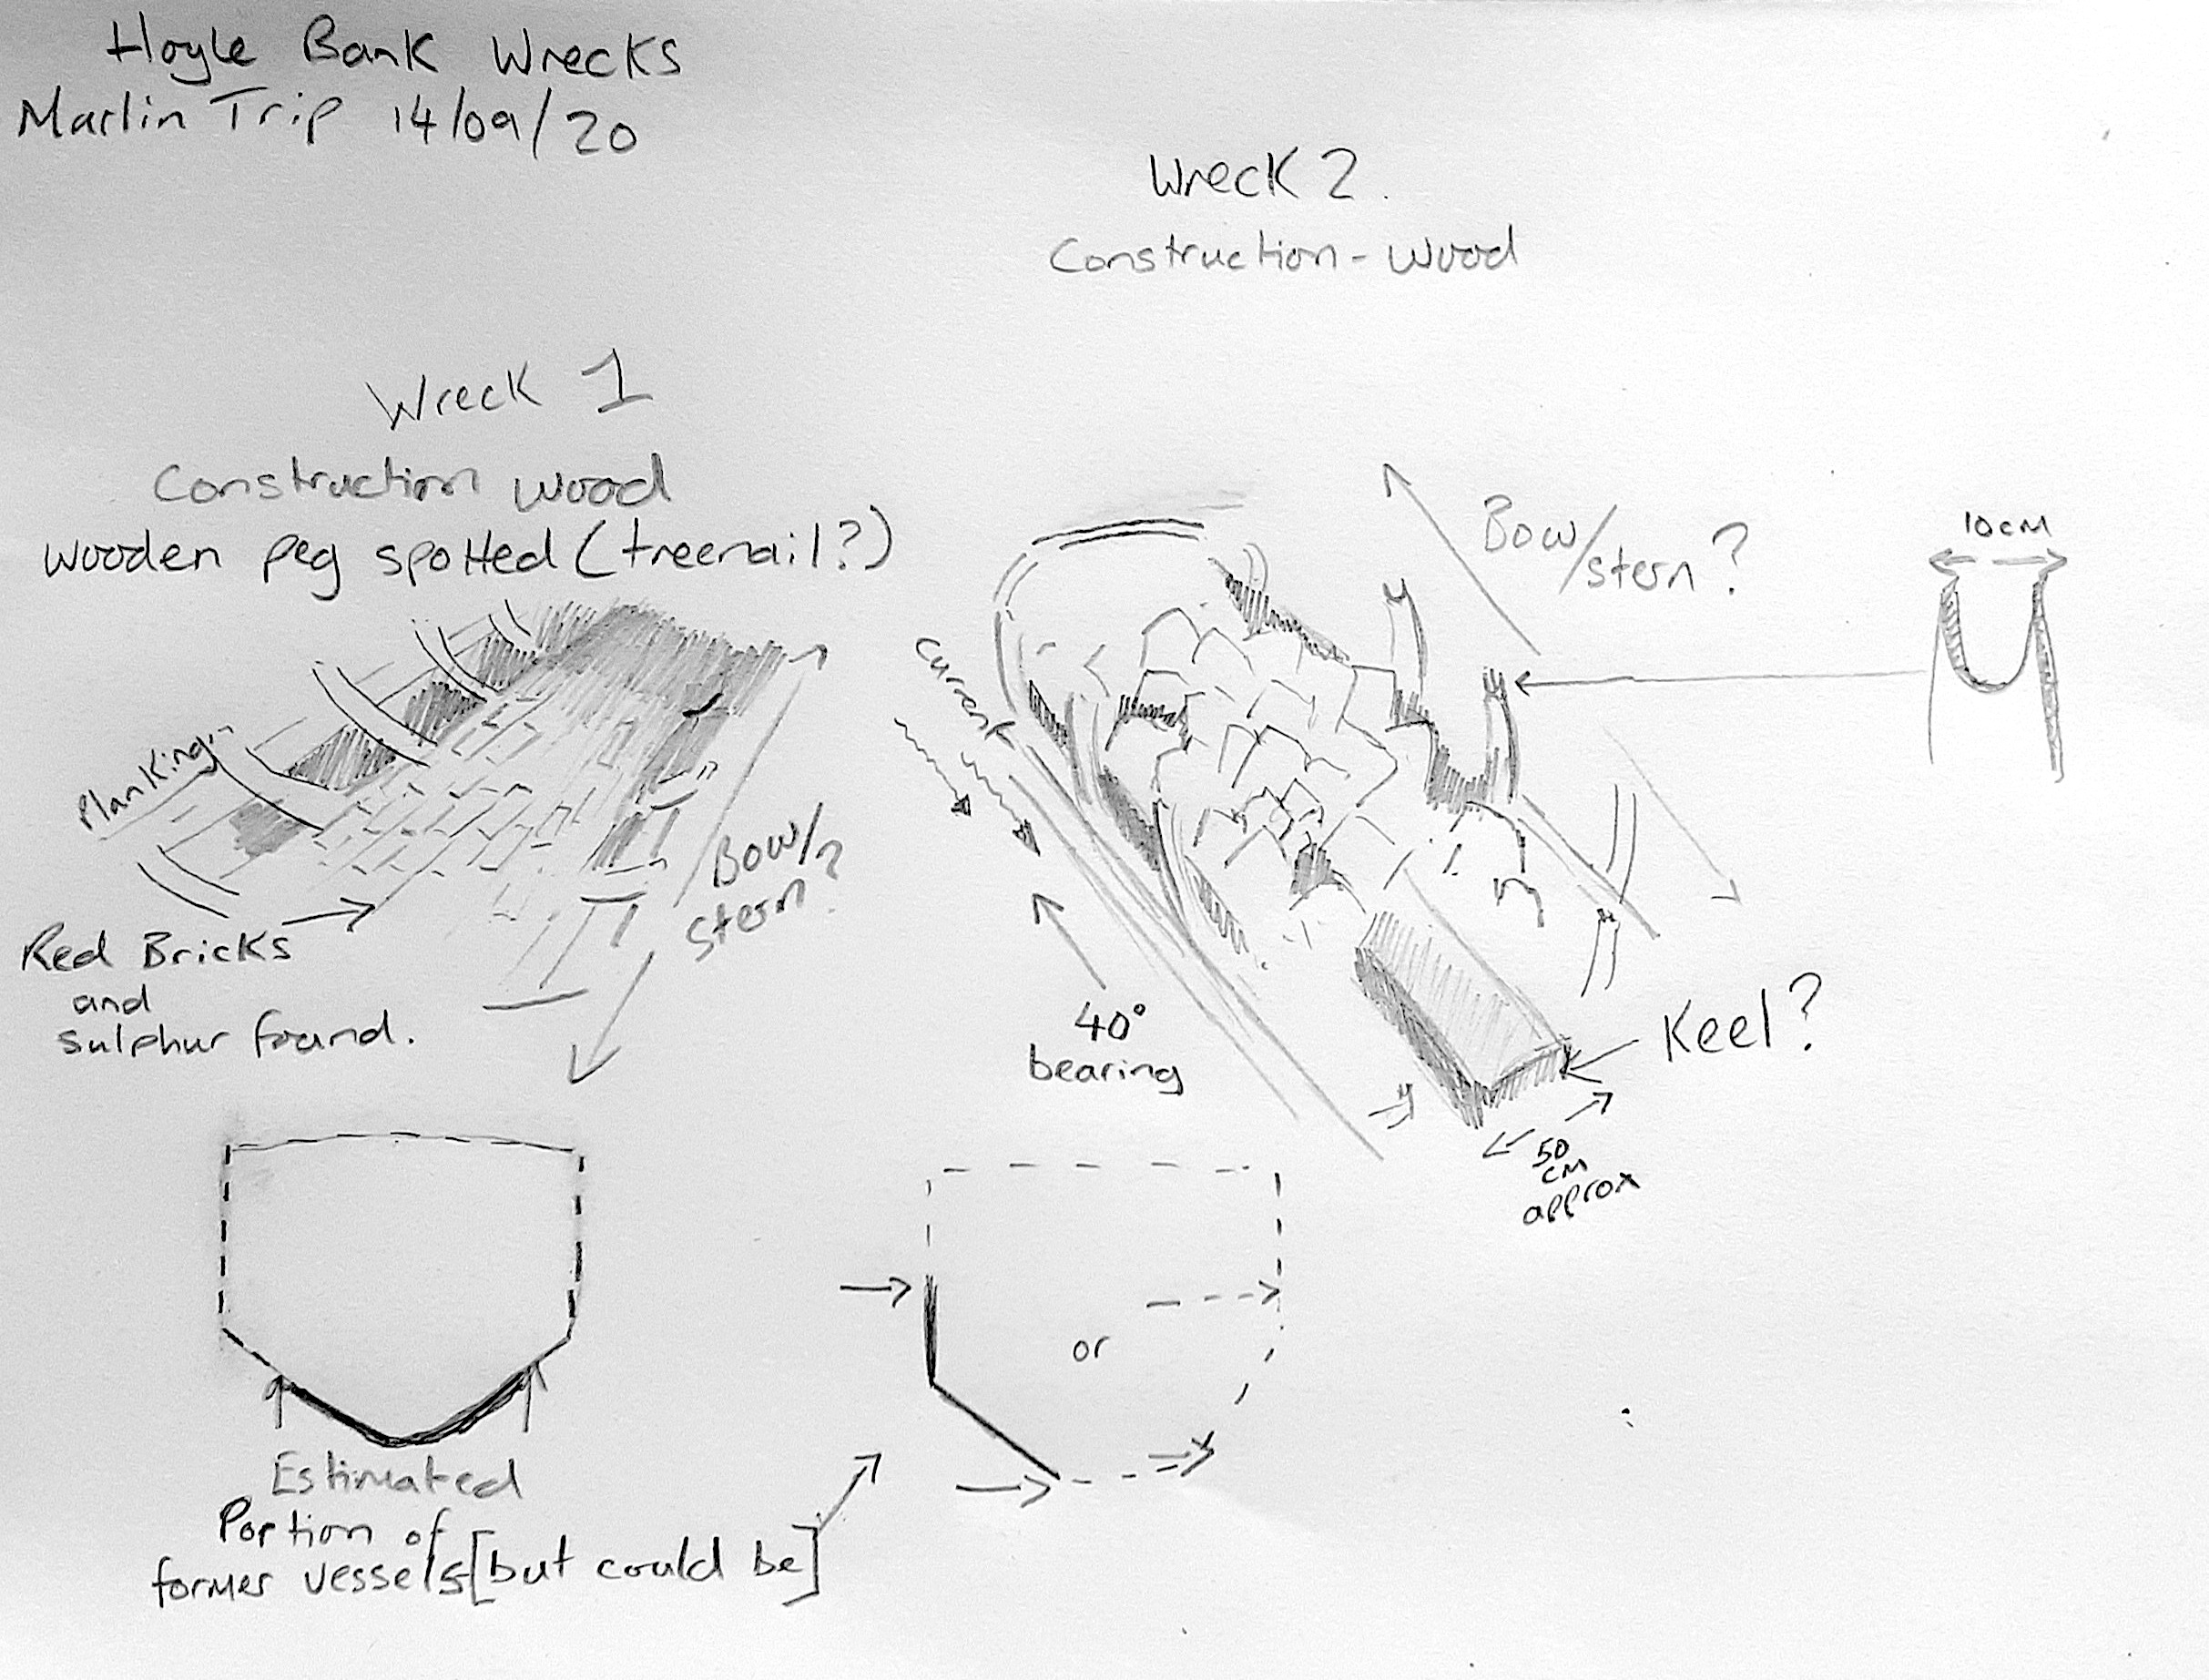 Hoyle Bank Wrecks
Marlin Trip 14/09/20
Wreck 2.
Construction - Wood
Wreck 1
Construction wood
wooden peg spotted (treenail?)
Planking
Red Bricks
and
sulphur found.
Bow/
stern?
Current
Bow/
stern?
10cm
40°
bearing
Keel?
50
cm
approx
or
Estimated
Portion of
former vessels [but could be]